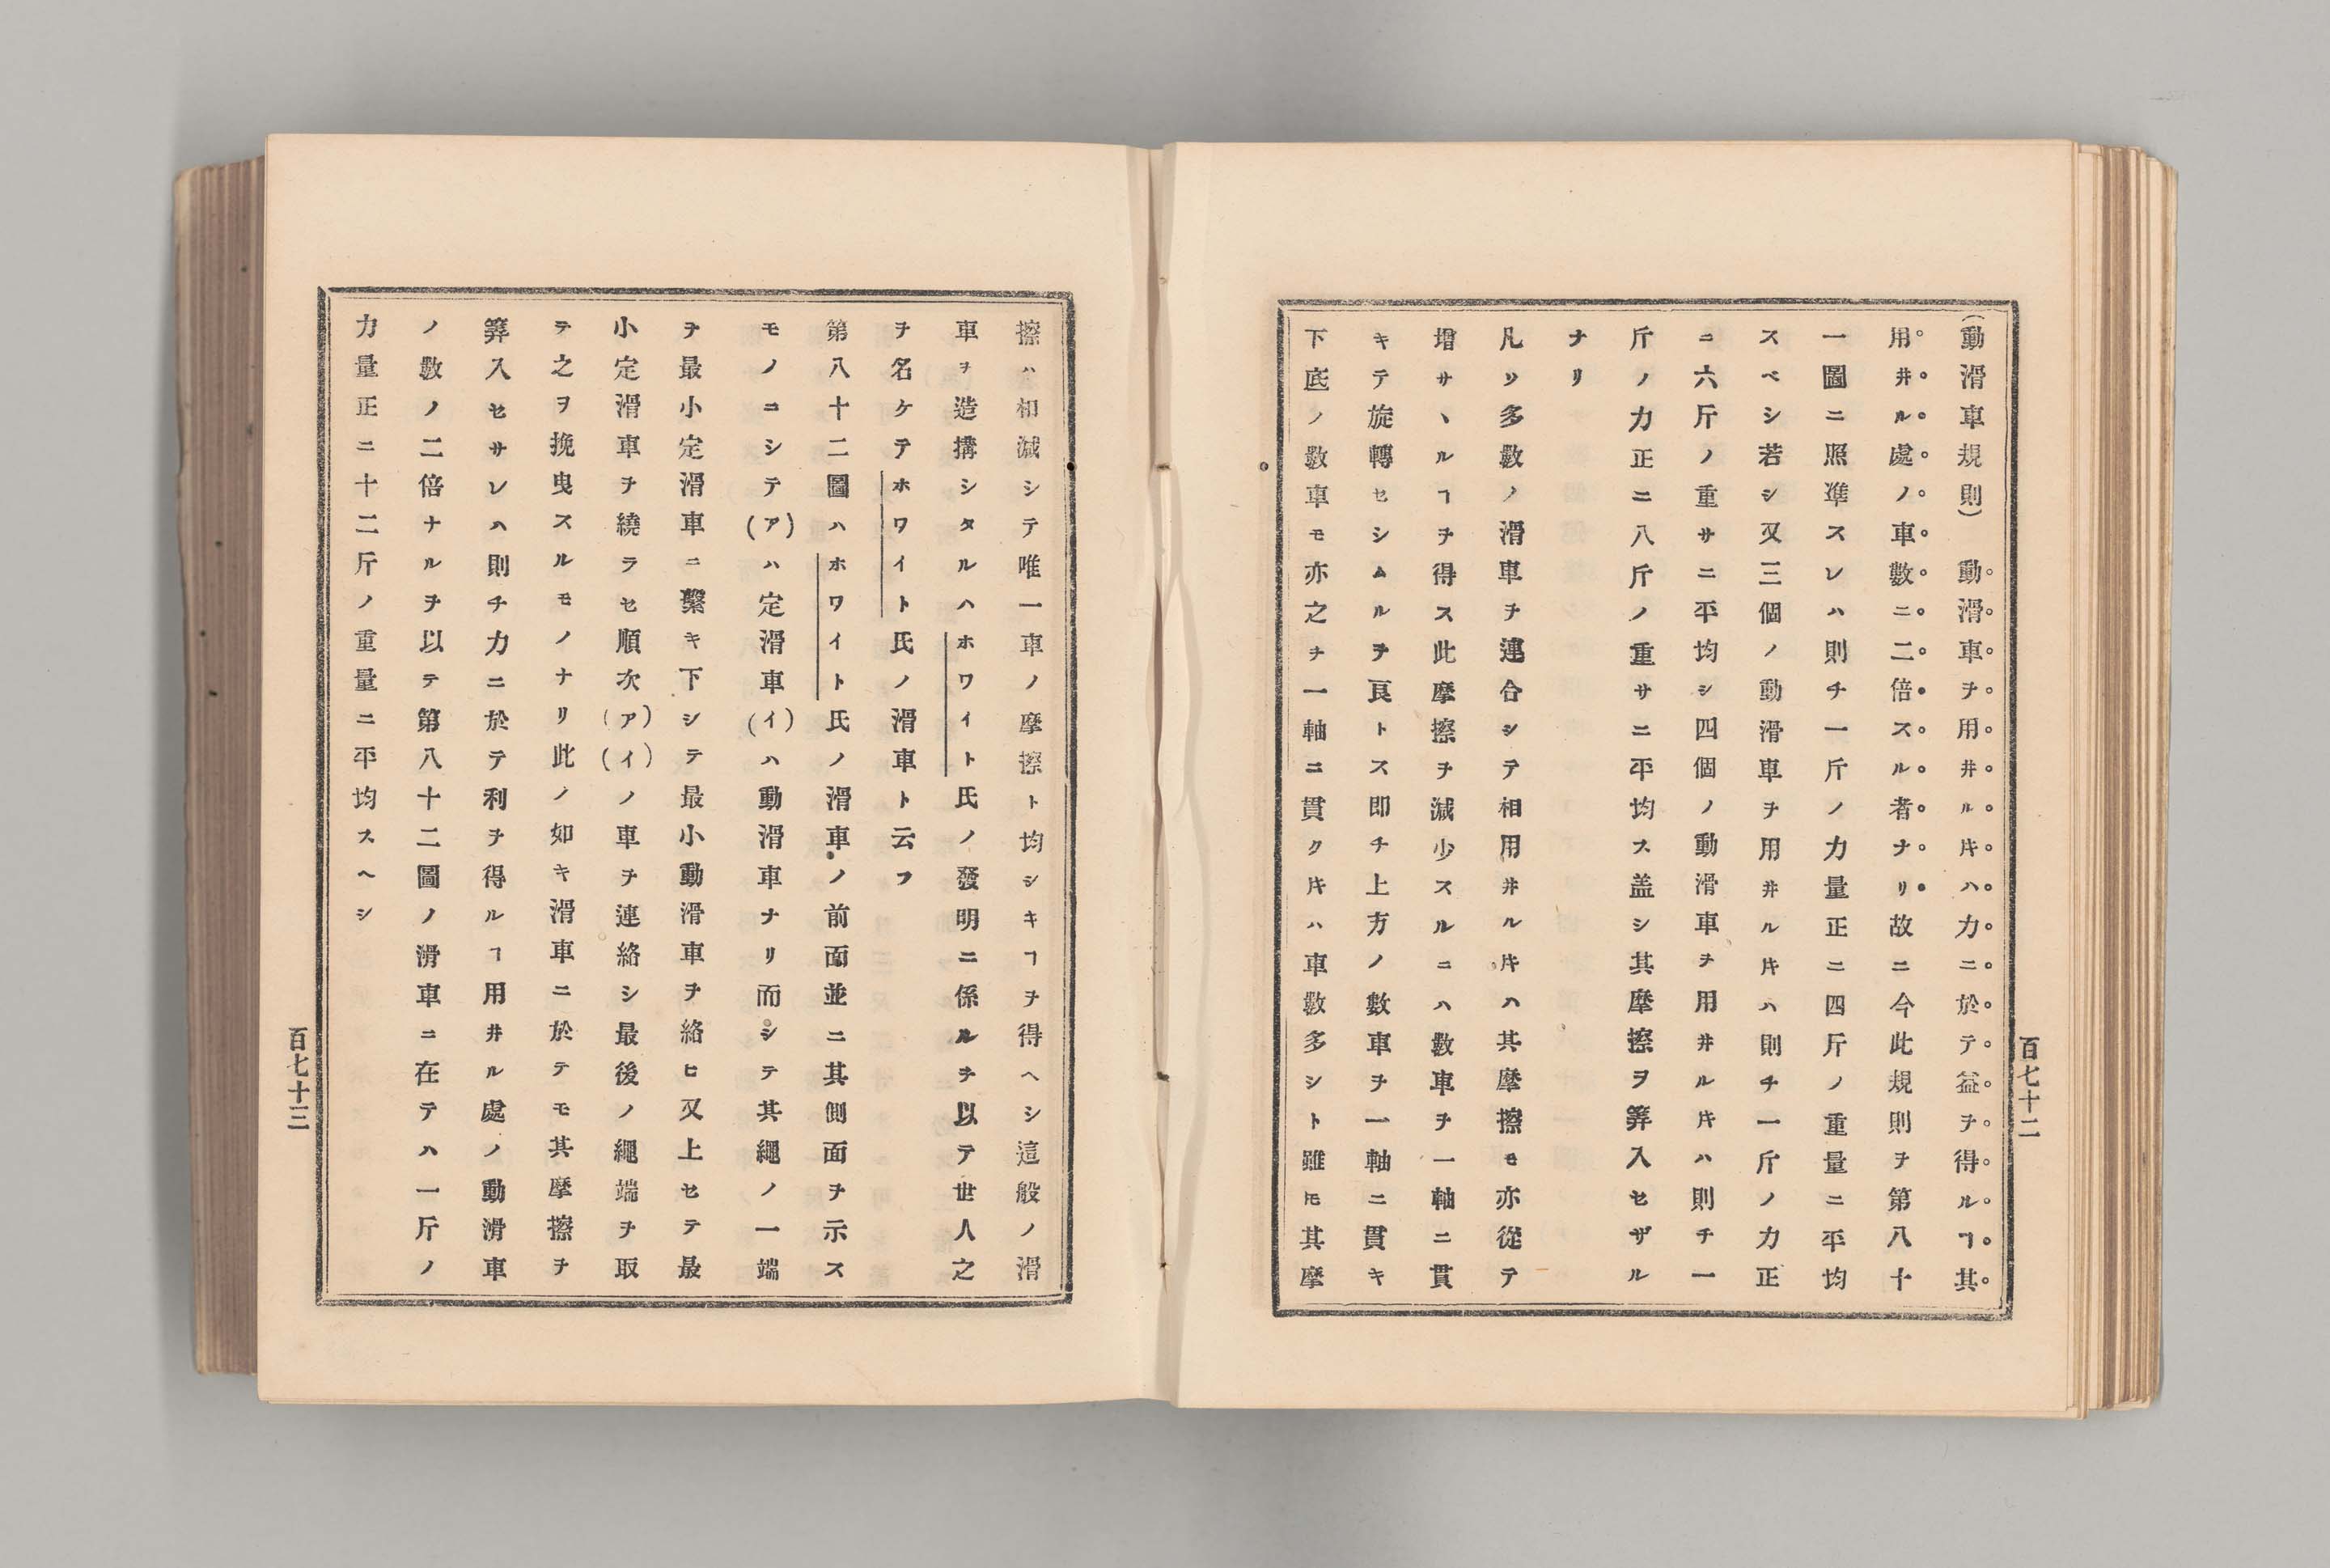 (動滑車規則)　動滑車ヲ用井ル𪜈ハ力ニ於テ益ヲ得ルヿ其
用井ル處ノ車數ニ二倍スル者ナリ故ニ今此規則ヲ第八十
一圖ニ照準スレハ則チ一斤ノ力量正ニ四斤ノ重量ニ平均
スベシ若シ又三個ノ動滑車ヲ用井ル𪜈ハ則チ一斤ノ力正
ニ六斤ノ重サニ平均シ四個ノ動滑車ヲ用井ル𪜈ハ則チ一
斤ノ力正ニ八斤ノ重サニ平均ス盖シ其摩擦ヲ筭入セザル
ナリ
凡ソ多數ノ滑車ヲ連合シテ相用井ル𪜈ハ其摩擦モ亦從テ
增サヽルヿヲ得ス此摩擦ヲ減少スルニハ數車ヲ一軸ニ貫
キテ旋轉セシムルヲ良トス即チ上方ノ數車ヲ一軸ニ貫キ
下底ノ數車モ亦之ヲ一軸ニ貫ク𪜈ハ車數多シト雖𪜈其摩
百七十二
擦ハ相減シテ唯一車ノ摩擦ト均シキヿヲ得ヘシ這般ノ滑
車ヲ造搆シタルハホワイト氏ノ發明ニ係ルヲ以テ世人之
ヲ名ケテホワイト氏ノ滑車ト云フ
第八十二圖ハホワイト氏ノ滑車ノ前面並ニ其側面ヲ示ス
モノニシテ(ア)ハ定滑車(イ)ハ動滑車ナリ而シテ其繩ノ一端
ヲ最小定滑車ニ繫キ下シテ最小動滑車ヲ絡ヒ又上セテ最
小定滑車ヲ繞ラセ順次(ア)(イ)ノ車ヲ連絡シ最後ノ繩端ヲ取
テ之ヲ挽曳スルモノナリ此ノ如キ滑車ニ於テモ其摩擦ヲ
筭入セサレハ則チ力ニ於テ利ヲ得ルヿ用井ル處ノ動滑車
ノ數ノ二倍ナルヲ以テ第八十二圖ノ滑車ニ在テハ一斤ノ
力量正ニ十二斤ノ重量ニ平均スヘシ
百七十三